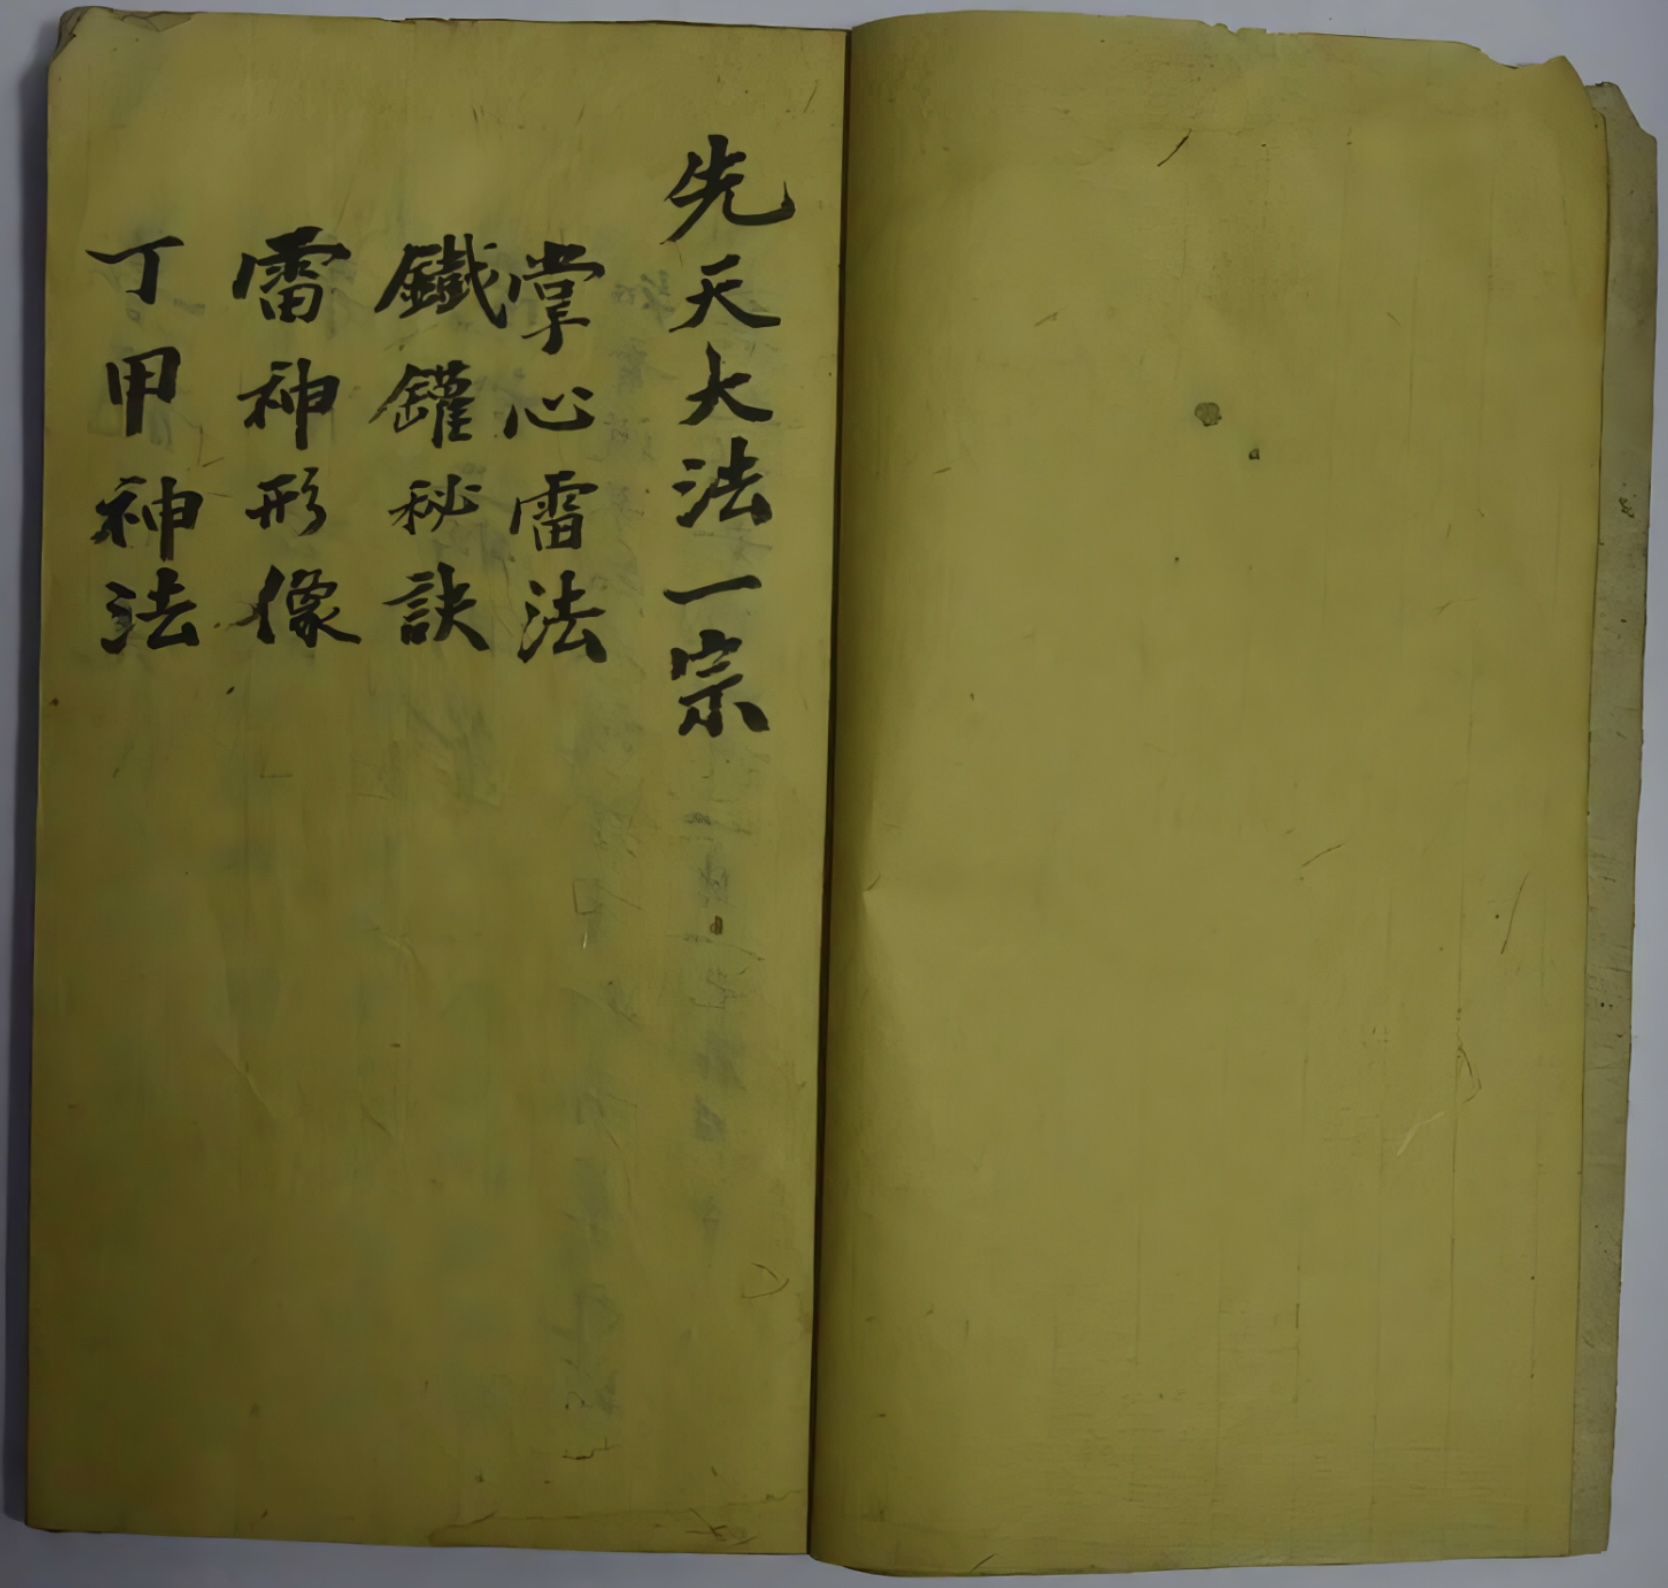 先天大法一宗
掌心雷法
鐵罐秘訣
雷神形像
丁甲神法